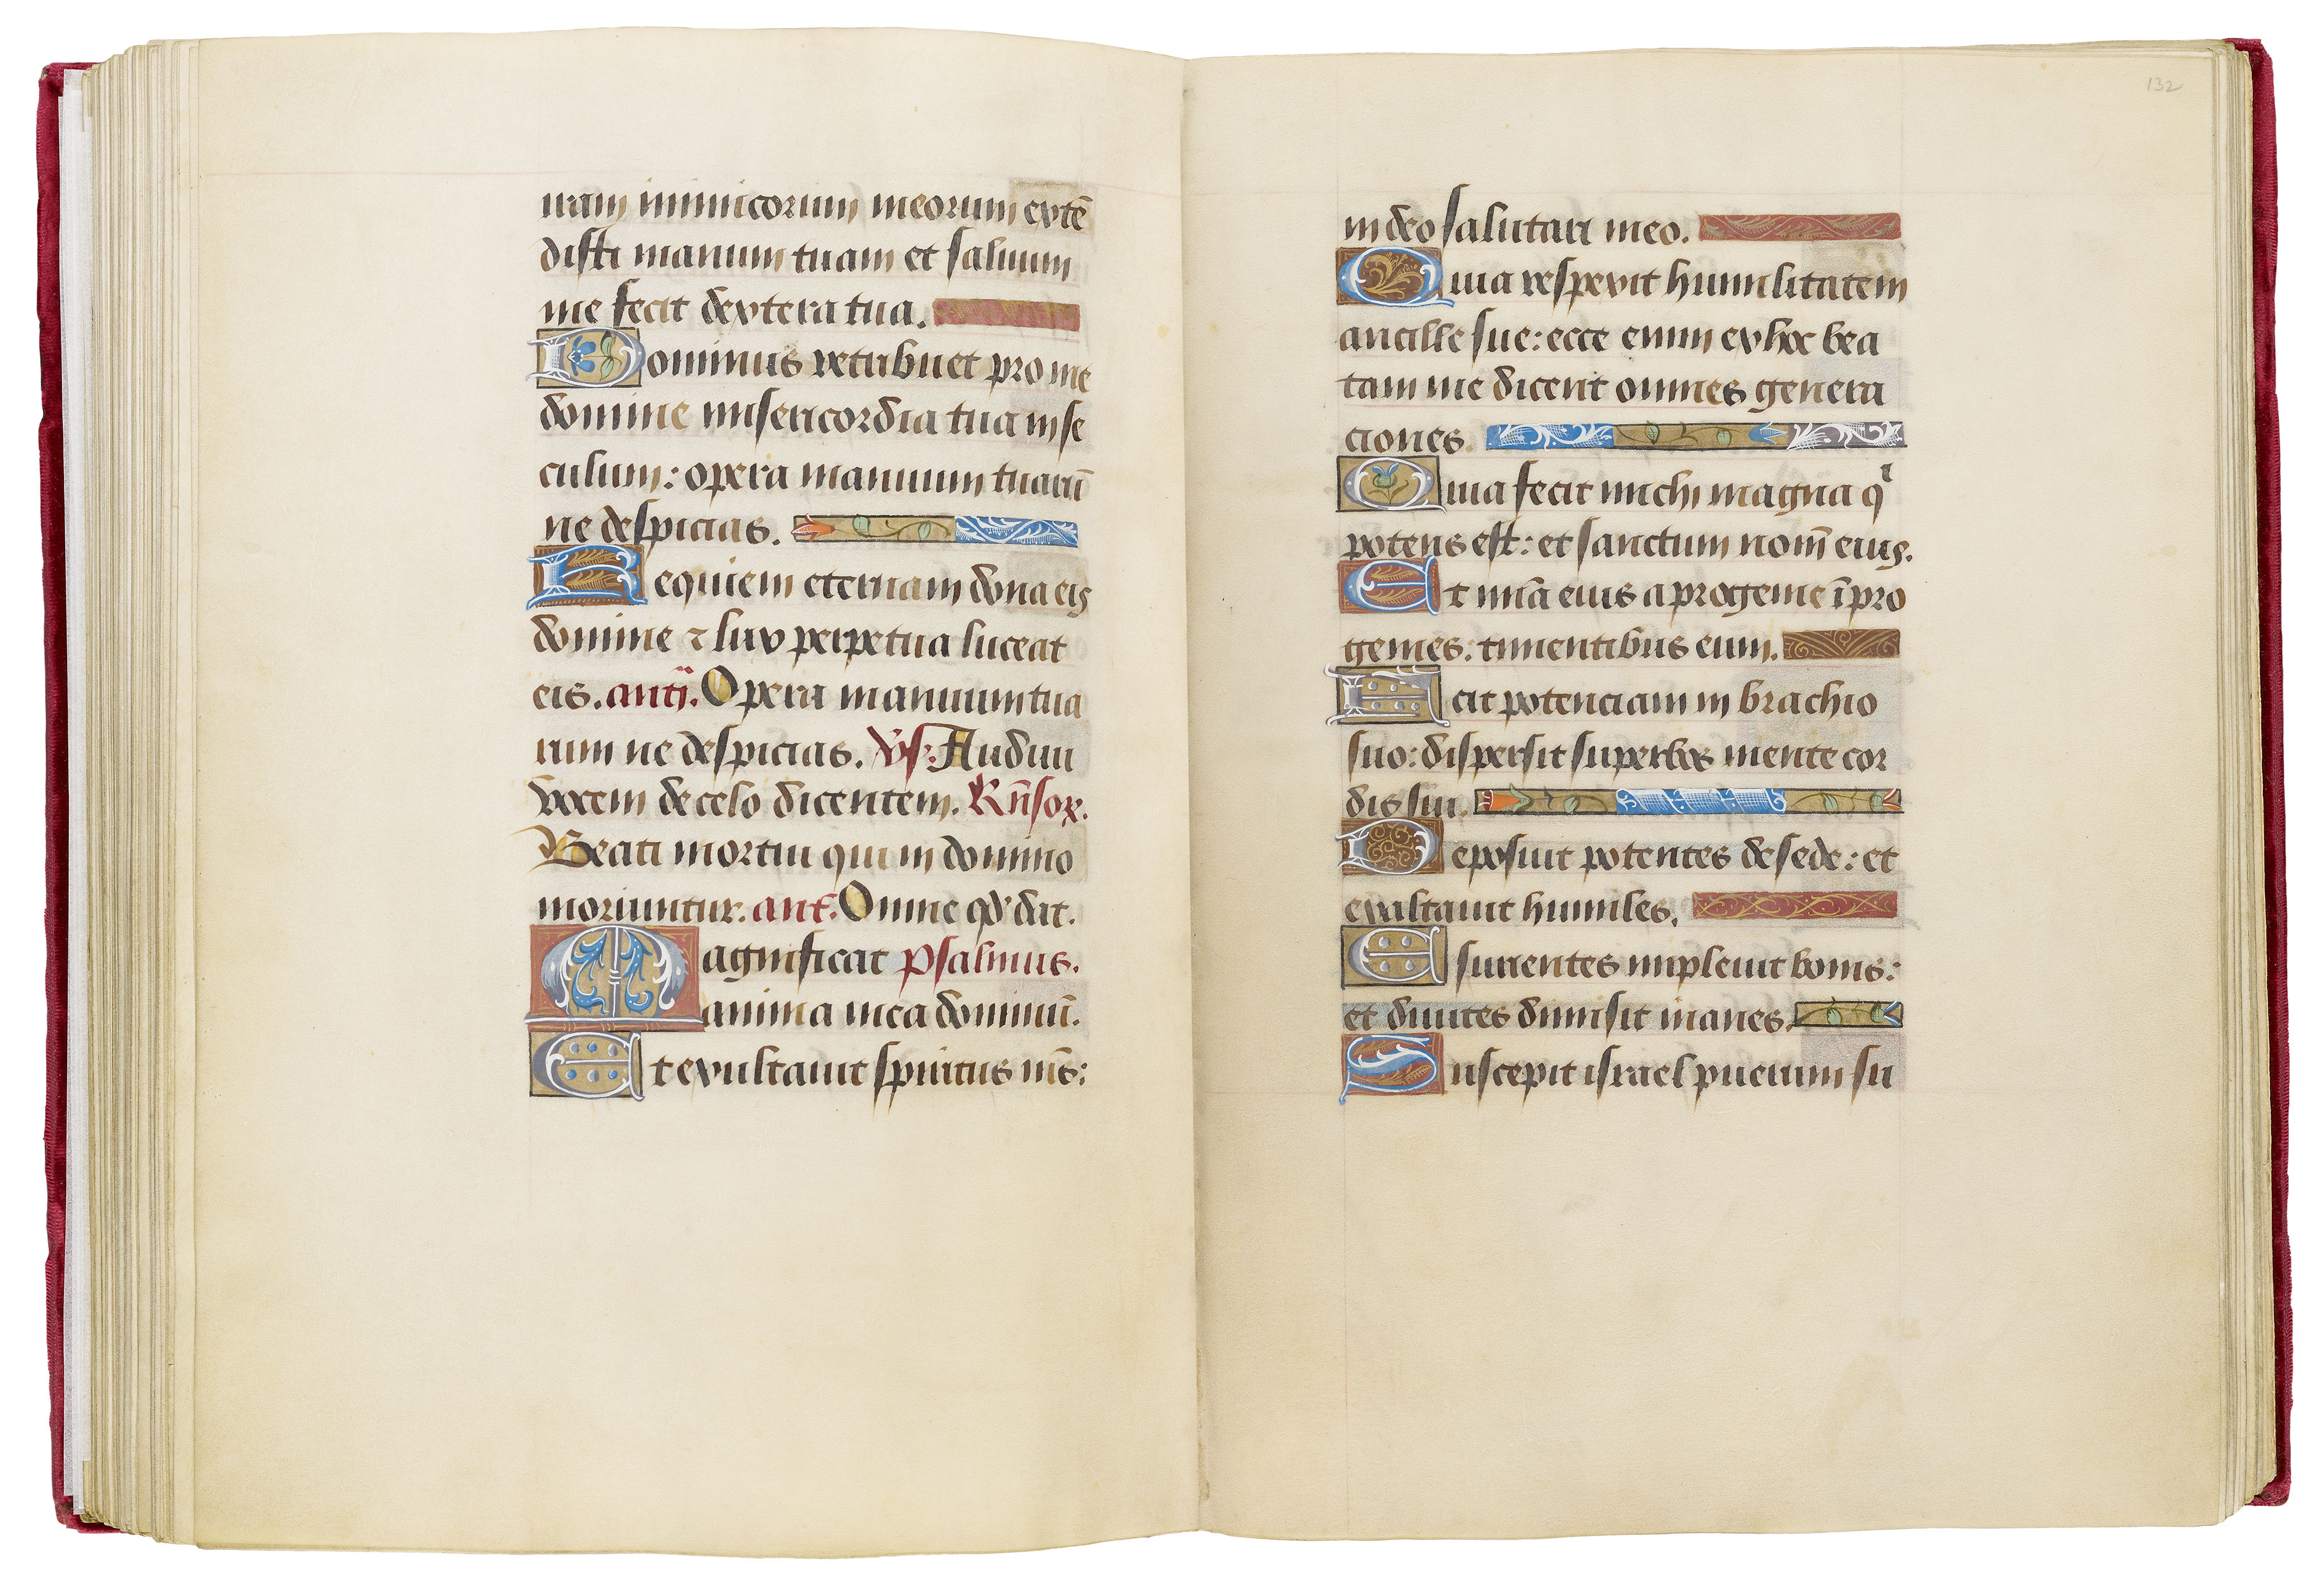 ram inimicorum meorum extē
disti manum tuam et saluum
me fecit dextera tua.
Dominus retribuet pro me
domine misericordia tua in se
culum: opera manuum tuarū
ne despicias.
Requiem eternam dona eis
domine ⁊ lux perpetua luceat
eis. antī. Opera manuum tua
rum ne despicias. V̄s. Audiui
vocem de celo dicentem. Rn̄sor.
Beati mortui qui in domino
moriuntur. ant. Omne qd' dat.
Magnificat psalmus.
anima mea dominū.
Et exultauit spiritus m̄s:
132
in deo salutari meo.
Quia respexit humilitatem
ancille sue: ecce enim ex hoc bea
tam me dicent omnes genera
ciones.
Quia fecit michi magna qⁱ
potens est: et sanctum nom̄ eius.
Et mīa eius a progenie ī pro
genies: timentibus eum.
Fecit potenciam in brachio
suo: dispersit superbos mente cor
dis sui.
Deposuit potentes de sede: et
exaltauit humiles.
Esurientes impleuit bonis:
et diuites dimisit inanes.
Suscepit israel puerum su